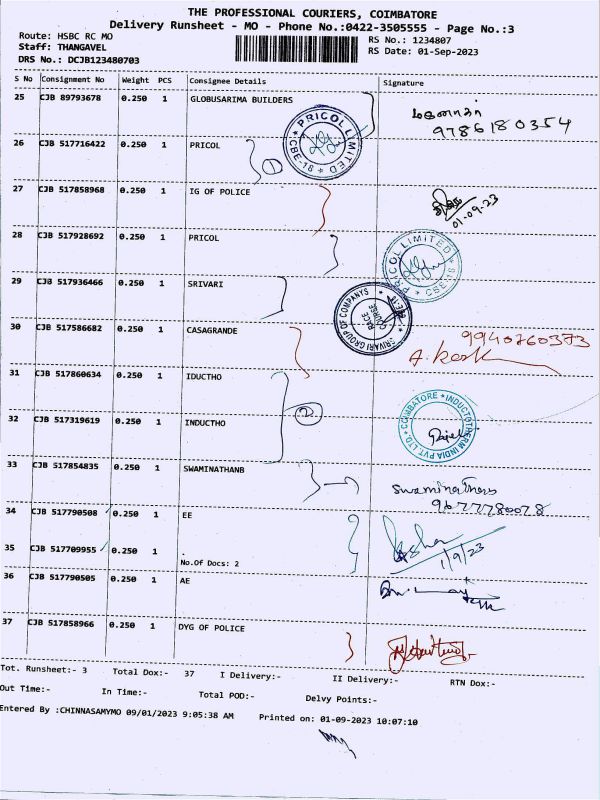 THE PROFESSIONAL COURIERS, COIMBATORE
Delivery Runsheet - MO - Phone No.:0422-3505555 - Page No.:3
Route: HSBC RC MO RS No.: 1234807
Staff: THANGAVEL RS Date: 01-Sep-2023
DRS No.: DCJB123480703
S No Consignment No Weight PCS Consignee Details Signature
25 CJB 89793678 0.250 1 GLOBUSARIMA BUILDERS
9786180354
PRICOL LIMITED CBE-18
26 CJB 517716422 0.250 1 PRICOL
1
27 CJB 517858968 0.250 1 IG OF POLICE
01-09-23
28 CJB 517928692 0.250 1 PRICOL
PRICOL LIMITED
29 CJB 517936466 0.250 1 SRIVARI
SRIVARI GROUP OF COMPANYS RACE COURSE
30 CJB 517586682 0.250 1 CASAGRANDE
9940760373
31 CJB 517860634 0.250 1 IDUCTHO
2
COIMBATORE INDUCTOTHERM INDIA PVT. LTD.
32 CJB 517319619 0.250 1 INDUCTHO
33 CJB 517854835 0.250 1 SWAMINATHANB
9677780078
34 CJB 517790508 0.250 1 EE
35 CJB 517709955 0.250 1 .
1/9/23
No.Of Docs: 2
36 CJB 517790505 0.250 1 AE
37 CJB 517858966 0.250 1 DYG OF POLICE
Tot. Runsheet:- 3 Total Dox:- 37 I Delivery:- II Delivery:- RTN Dox:-
Out Time:- In Time:- Total POD:- Delvy Points:-
Entered By :CHINNASAMYMO 09/01/2023 9:05:38 AM Printed on: 01-09-2023 10:07:10